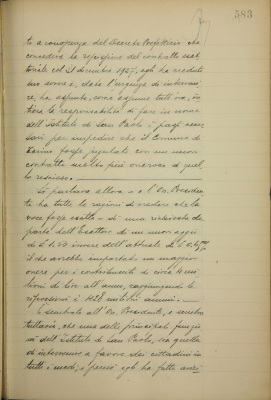 383
to a conoscenza del Decreto Prefettizio che
concedeva la rescissione del contratto esat-
toriale col 31 dicembre 1927, egli ha creduto
suo dovere e, data l'urgenza di interveni-
re, ha assunto, come assume tutt'ora, in-
tera la responsabilità di fare in nome
dell'Istituto di San Paolo i passi neces-
sari per impedire che il Comune di
Torino fosse legato con un nuovo
contratto molto più oneroso di quel-
lo rescisso.
Si parlava allora e l'On. Presiden-
te ha tutte le ragioni di credere che la
voce fosse esatta di una richiesta da
parte dell'Esattore di un nuovo aggio
di £ 1.50 invece dell'attuale di £ 0.
il che avrebbe importato un maggior
onere per i contribuenti di circa
lioni di lire all'anno, ragguagliando le
riscossioni a milioni annui.
È sembrato all'On. Presidente, e sembra
tuttavia, che una delle principali funzio-
ni dell'Istituto di San Paolo, sia quella
di intervenire a favore dei cittadini in
tutti i modi, e perciò egli ha fatto